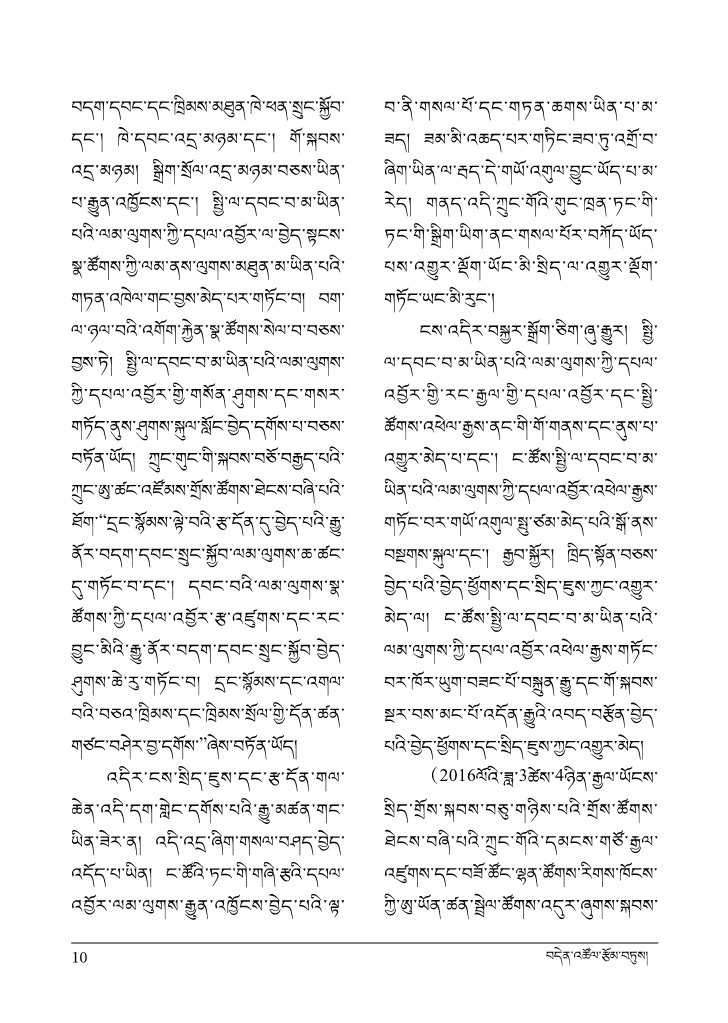 བདག་དབང་དང་ཁྲིམས་མཐུན་ཁེ་ཕན་སྲུང་སྐྱོབ་
དང་། ཁེ་དབང་འདྲ་མཉམ་དང་། གོ་སྐབས་
འདྲ་མཉམ། སྒྲིག་སྲོལ་འདྲ་མཉམ་བཅས་ཡིན་
པ་རྒྱུན་འཁྱོངས་དང་། སྤྱི་ལ་དབང་བ་མ་ཡིན་
པའི་ལམ་ལུགས་ཀྱི་དཔལ་འབྱོར་ལ་བྱེད་སྟངས་
སྣ་ཚོགས་ཀྱི་ལམ་ནས་ལུགས་མཐུན་མ་ཡིན་པའི་
གཏན་འཁེལ་གང་བྱས་མེད་པར་གཏོང་བ། བག་
ལ་ཉལ་བའི་འགོག་རྐྱེན་སྣ་ཚོགས་སེལ་བ་བཅས་
བྱས་ཏེ། སྤྱི་ལ་དབང་བ་མ་ཡིན་པའི་ལམ་ལུགས་
ཀྱི་དཔལ་འབྱོར་གྱི་གསོན་ཤུགས་དང་གསར་
གཏོད་ནུས་ཤུགས་སྐུལ་སློང་བྱེད་དགོས་པ་བཅས་
བཏོན་ཡོད། ཀྲུང་གུང་གི་སྐབས་བཅོ་བརྒྱད་པའི་
ཀྲུང་ཨུ་ཚང་འཛོམས་གྲོས་ཚོགས་ཐེངས་བཞི་པའི་
ཐོག་“དྲང་སྙོམས་ལྟེ་བའི་རྩ་དོན་དུ་བྱེད་པའི་རྒྱུ་
ནོར་བདག་དབང་སྲུང་སྐྱོབ་ལམ་ལུགས་ཆ་ཚང་
དུ་གཏོང་བ་དང་། དབང་བའི་ལམ་ལུགས་སྣ་
ཚོགས་ཀྱི་དཔལ་འབྱོར་རྩ་འཛུགས་དང་རང་
བྱུང་མིའི་རྒྱུ་ནོར་བདག་དབང་སྲུང་སྐྱོབ་བྱེད་
ཤུགས་ཆེ་རུ་གཏོང་བ། དྲང་སྙོམས་དང་འགལ་
བའི་བཅའ་ཁྲིམས་དང་ཁྲིམས་སྲོལ་གྱི་དོན་ཚན་
གཙང་བཤེར་བྱ་དགོས”ཞེས་བཏོན་ཡོད།
འདིར་ངས་སྲིད་ཇུས་དང་རྩ་དོན་གལ་
ཆེན་འདི་དག་གླེང་དགོས་པའི་རྒྱུ་མཚན་གང་
ཡིན་ཟེར་ན། འདི་འདྲ་ཞིག་གསལ་བཤད་བྱེད་
འདོད་པ་ཡིན། ང་ཚོའི་ཏང་གི་གཞི་རྩའི་དཔལ་
འབྱོར་ལམ་ལུགས་རྒྱུན་འཁྱོངས་བྱེད་པའི་ལྟ་
བ་ནི་གསལ་པོ་དང་གཏན་ཆགས་ཡིན་པ་མ་
ཟད། ཟམ་མི་འཆད་པར་གཏིང་ཟབ་ཏུ་འགྲོ་བ་
ཞིག་ཡིན་ལ་རྦད་དེ་གཡོ་འགུལ་བྱུང་ཡོད་པ་མ་
རེད། གནད་འདི་ཀྲུང་གོའི་གུང་ཁྲན་ཏང་གི་
ཏང་གི་སྒྲིག་ཡིག་ནང་གསལ་པོར་བཀོད་ཡོད་
པས་འགྱུར་ལྡོག་ཡོང་མི་སྲིད་ལ་འགྱུར་ལྡོག་
གཏོང་ཡང་མི་རུང་།
ངས་འདིར་བསྐྱར་སྒྲོག་ཅིག་ཞུ་རྒྱུར། སྤྱི་
ལ་དབང་བ་མ་ཡིན་པའི་ལམ་ལུགས་ཀྱི་དཔལ་
འབྱོར་གྱི་རང་རྒྱལ་གྱི་དཔལ་འབྱོར་དང་སྤྱི་
ཚོགས་འཕེལ་རྒྱས་ནང་གི་གོ་གནས་དང་ནུས་པ་
འགྱུར་མེད་པ་དང་། ང་ཚོས་སྤྱི་ལ་དབང་བ་མ་
ཡིན་པའི་ལམ་ལུགས་ཀྱི་དཔལ་འབྱོར་འཕེལ་རྒྱས་
གཏོང་བར་གཡོ་འགུལ་སྤུ་ཙམ་མེད་པའི་སྒོ་ནས་
བསྔགས་སྐུལ་དང་། རྒྱབ་སྐྱོར། ཁྲིད་སྟོན་བཅས་
བྱེད་པའི་བྱེད་ཕྱོགས་དང་སྲིད་ཇུས་ཀྱང་འགྱུར་
མེད་ལ། ང་ཚོས་སྤྱི་ལ་དབང་བ་མ་ཡིན་པའི་
ལམ་ལུགས་ཀྱི་དཔལ་འབྱོར་འཕེལ་རྒྱས་གཏོང་
བར་ཁོར་ཡུག་བཟང་པོ་བསྐྲུན་རྒྱུ་དང་གོ་སྐབས་
སྔར་བས་མང་པོ་འདོན་རྒྱུའི་འབད་བརྩོན་བྱེད་
པའི་བྱེད་ཕྱོགས་དང་སྲིད་ཇུས་ཀྱང་འགྱུར་མེད།
(2016ལོའི་ཟླ་3ཚེས་4ཉིན་རྒྱལ་ཡོངས་
སྲིད་གྲོས་སྐབས་བཅུ་གཉིས་པའི་གྲོས་ཚོགས་
ཐེངས་བཞི་པའི་ཀྲུང་གོའི་དམངས་གཙོ་རྒྱལ་
འཛུགས་དང་བཟོ་ཚོང་ལྷན་ཚོགས་རིགས་ཁོངས་
ཀྱི་ཨུ་ཡོན་ཚན་སྦྲེལ་ཚོགས་འདུར་ཞུགས་སྐབས་
10
བདེན་འཚོལ་རྩོམ་བཏུས།